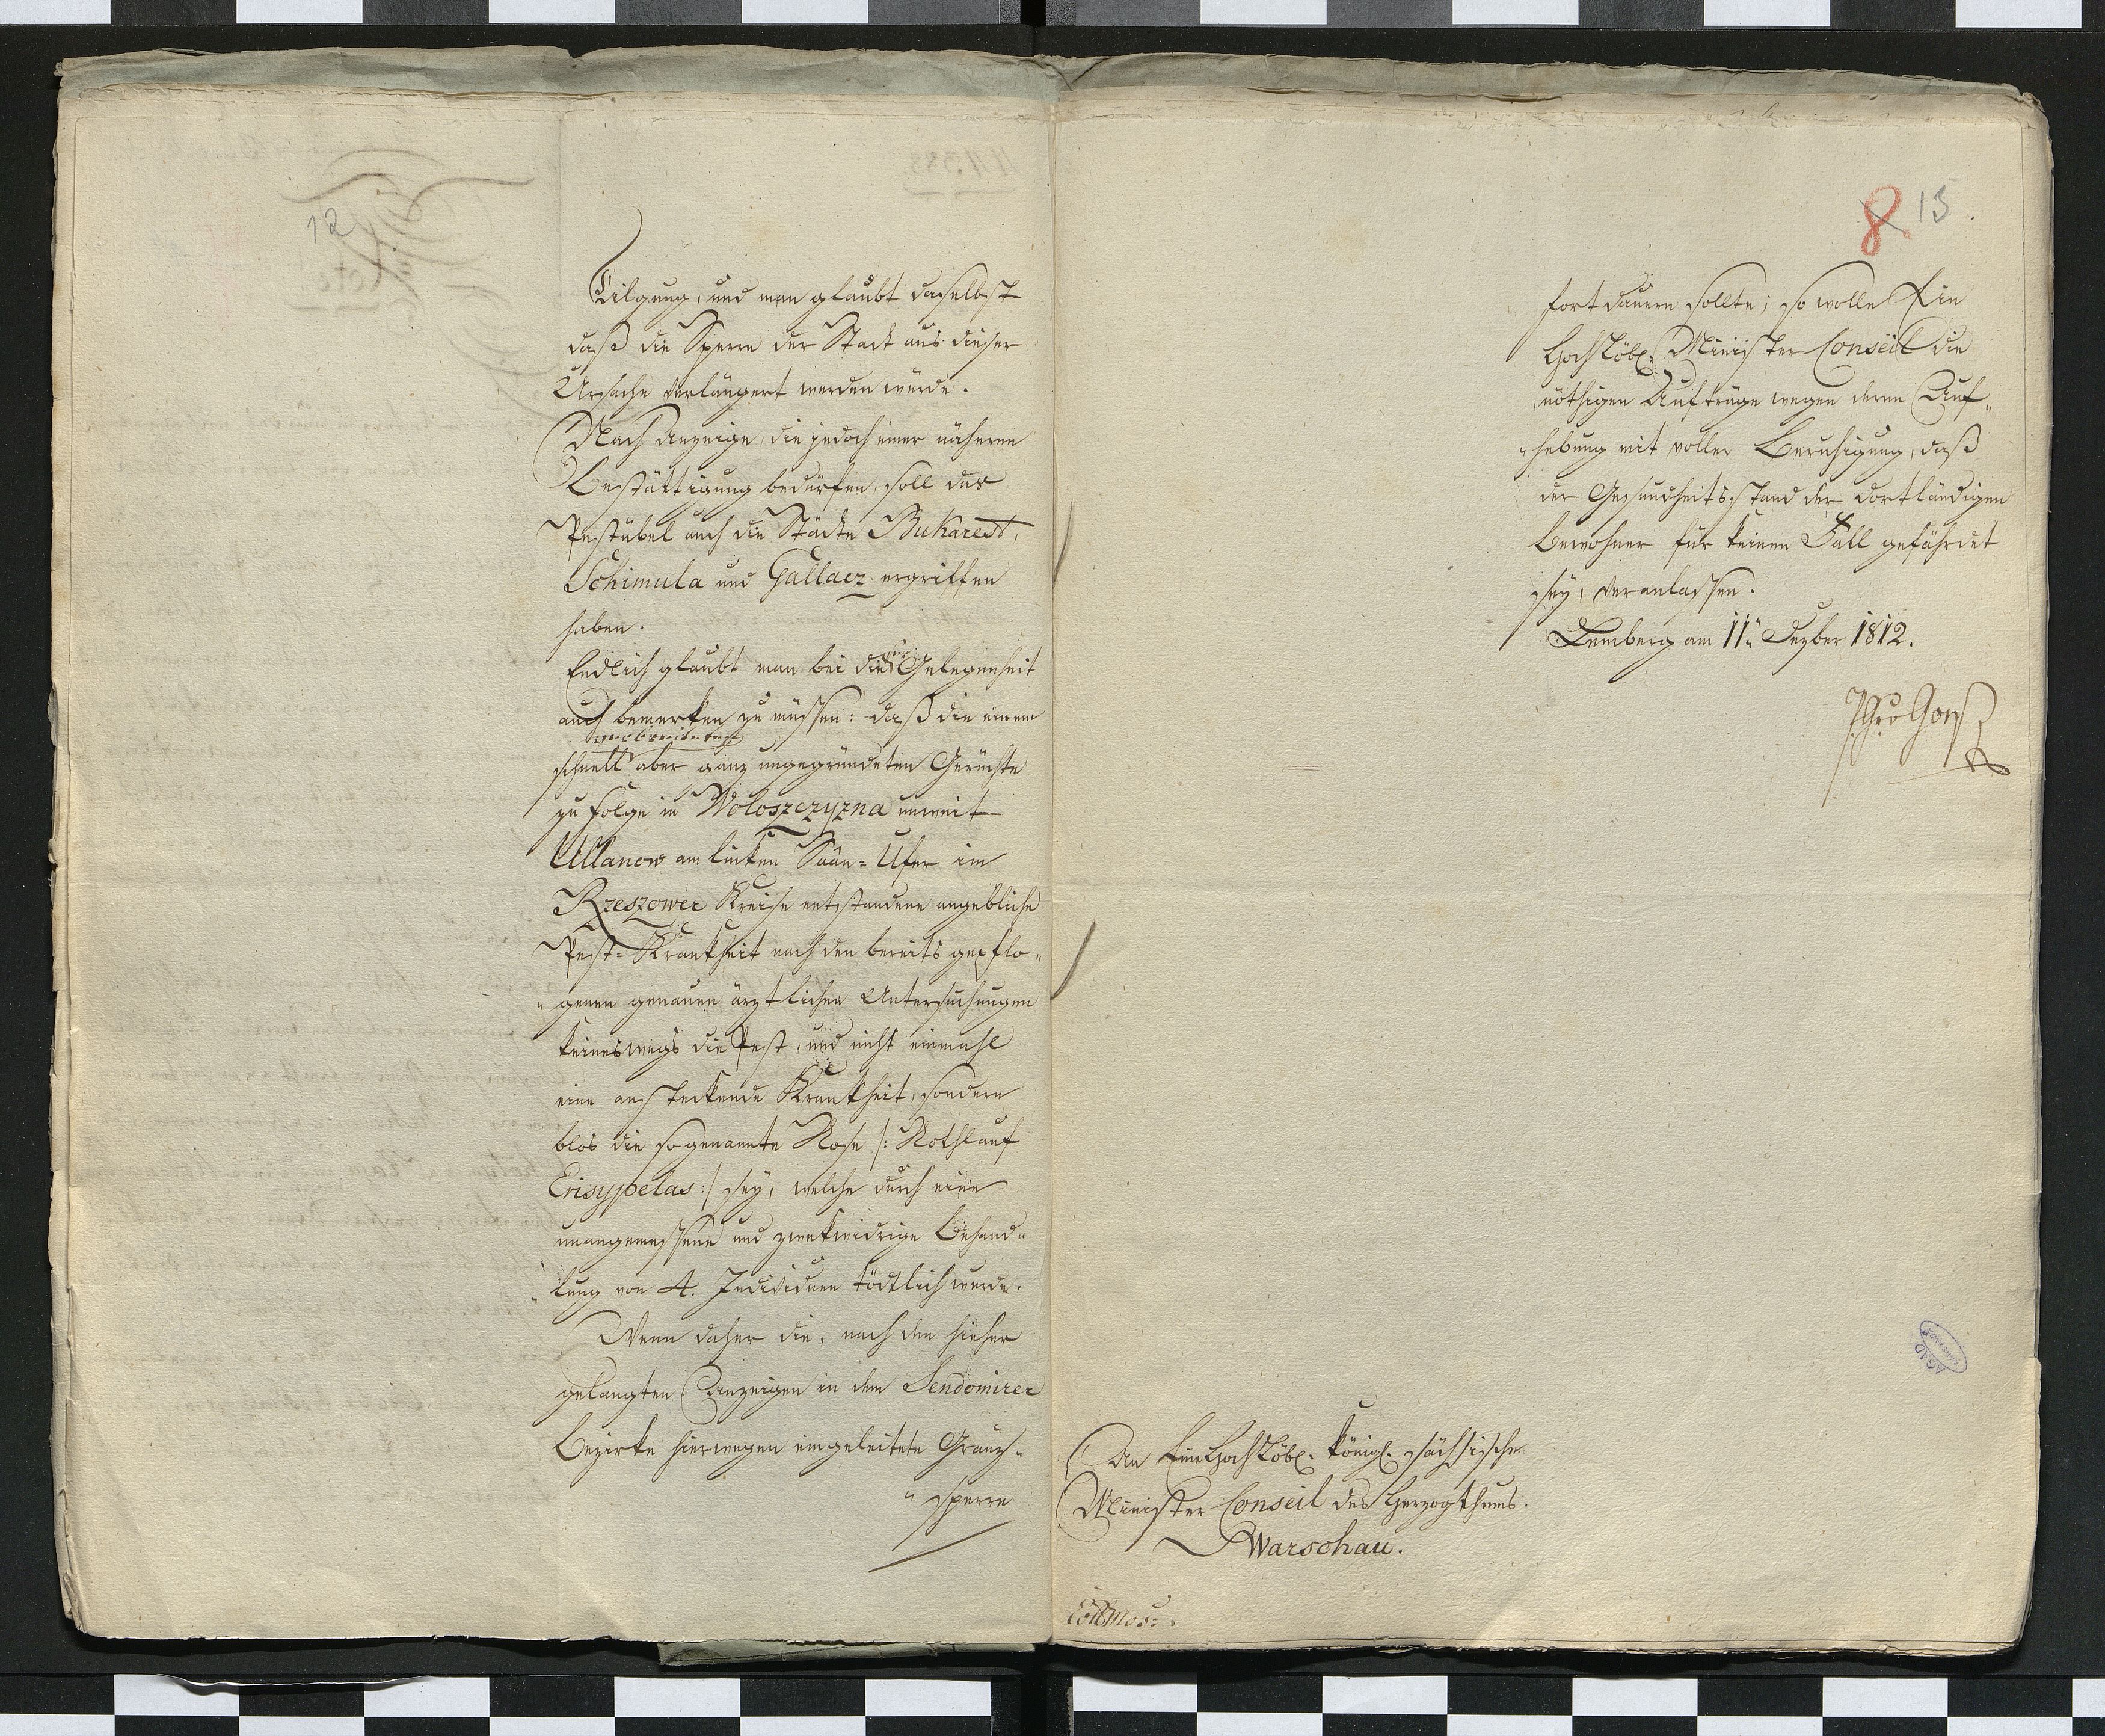 12
Tilgung, und man glaubt daselbst
daß die Sperre der Stadt aus dieser
Ursache verlängert werden würde.
Nach Anzeige, die jedoch einer näheren
Bestättigung bedürfen, soll das
Pestübel auch die Städte Bukarest,
Schimula und Gallacz ergriffen
haben.
Endlich glaubt man bei dieser Gelegenheit
auch bemerken zu müssen: daß die einem
verbreiteten
schnell aber ganz ungegründeten Gerüchte
zu Folge in Woloszczyzna unweit
Ullanow am linken Saan=Ufer im
Rzeszower Kreise entstandene angebliche
Pest=Krankheit nach den bereits gepflo„
„genen genauen ärztlichen Untersuchungen
keineswegs die Pest, und nicht einmahl
eine ansteckende Krankheit, sondern
blos die sogenannte Rose /: Rothlauf
Erisypelas :/ sey, welche durch eine
unangemessene und zwekwidrige Behand„
„lung von 4. Individuen tödtlich wurde.
Wenn daher die, nach den hieher
gelangten Anzeigen in dem Sendomirer
Bezirke hierwegen eingeleitete Gränz„
„sperre
8 13
fortdauern sollte; so wolle Ein
Hochlöbl. Minister Conseil die
nöthigen Aufträge wegen deren Auf„
„hebung mit voller Beruhigung, daß
der Gesundheitsstand der dortländigen
Bewohner für keinen Fall gefährdet
sey, veranlassen.
Lemberg am 11ⁿ Dezber 1812.
An Ein Hochlöbl. königl. sächsische
Minister Conseil des Herzogthums.
Warschau.
AGAD